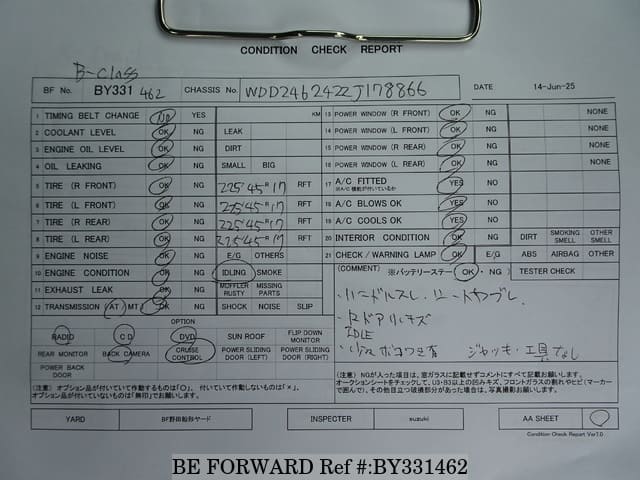 CONDITION CHECK REPORT
B-Class
BF No. BY331462 CHASSIS No. WDD2462422J178866 DATE 14-Jun-25
1 TIMING BELT CHANGE No YES KM
2 COOLANT LEVEL OK NG LEAK
3 ENGINE OIL LEVEL OK NG DIRT
4 OIL LEAKING OK NG SMALL BIG
5 TIRE (R FRONT) OK NG 225 45 R 17 RFT
6 TIRE (L FRONT) OK NG 225 45 R 17 RFT
7 TIRE (R REAR) OK NG 225 45 R 17 RFT
8 TIRE (L REAR) OK NG 225 45 R 17 RFT
9 ENGINE NOISE OK NG E/G OTHERS
10 ENGINE CONDITION OK NG IDLING SMOKE
11 EXHAUST LEAK OK NG MUFFLER RUSTY MISSING PARTS
12 TRANSMISSION AT MT OK NG SHOCK NOISE SLIP
OPTION
RADIO CD DVD SUN ROOF FLIP DOWN MONITOR
REAR MONITOR BACK CAMERA CRUISE CONTROL POWER SLIDING DOOR (LEFT) POWER SLIDING DOOR (RIGHT)
POWER BACK DOOR
(注意) オプション品が付いていて作動するものは「○」、付いていて作動しないものは「×」、
オプション品が付いていないものは「無印」でお願いします。
13 POWER WINDOW (R FRONT) OK NG NONE
14 POWER WINDOW (L FRONT) OK NG NONE
15 POWER WINDOW (R REAR) OK NG NONE
16 POWER WINDOW (L REAR) OK NG NONE
17 A/C FITTED YES NO
※A/C機能が付いているか
18 A/C BLOWS OK YES NO
19 A/C COOLS OK YES NO
20 INTERIOR CONDITION OK NG DIRT SMOKING SMELL OTHER SMELL
21 CHECK/WARNING LAMP OK E/G ABS AIRBAG OTHER
(COMMENT) ※バッテリーステー( OK ・ NG ) TESTER CHECK
・ハンドルスレ、シートヤブレ
・Rドアリキズ
IDLE
ボコつき有 ジャッキ・工具なし
(注意) NGが入った項目は、窓ガラスに記載せずコメントにすべて記載お願いします。
オークションシートをチェックして、U3・B3以上の凹みキズ、フロントガラスの割れやヒビ(マーカー
で囲んで)、その他目立つ破損部分があった場合は、写真撮影お願いします。
YARD BF野田船形ヤード INSPECTER suzuki AA SHEET
Condition Check Report Ver7.0
BE FORWARD Ref #:BY331462